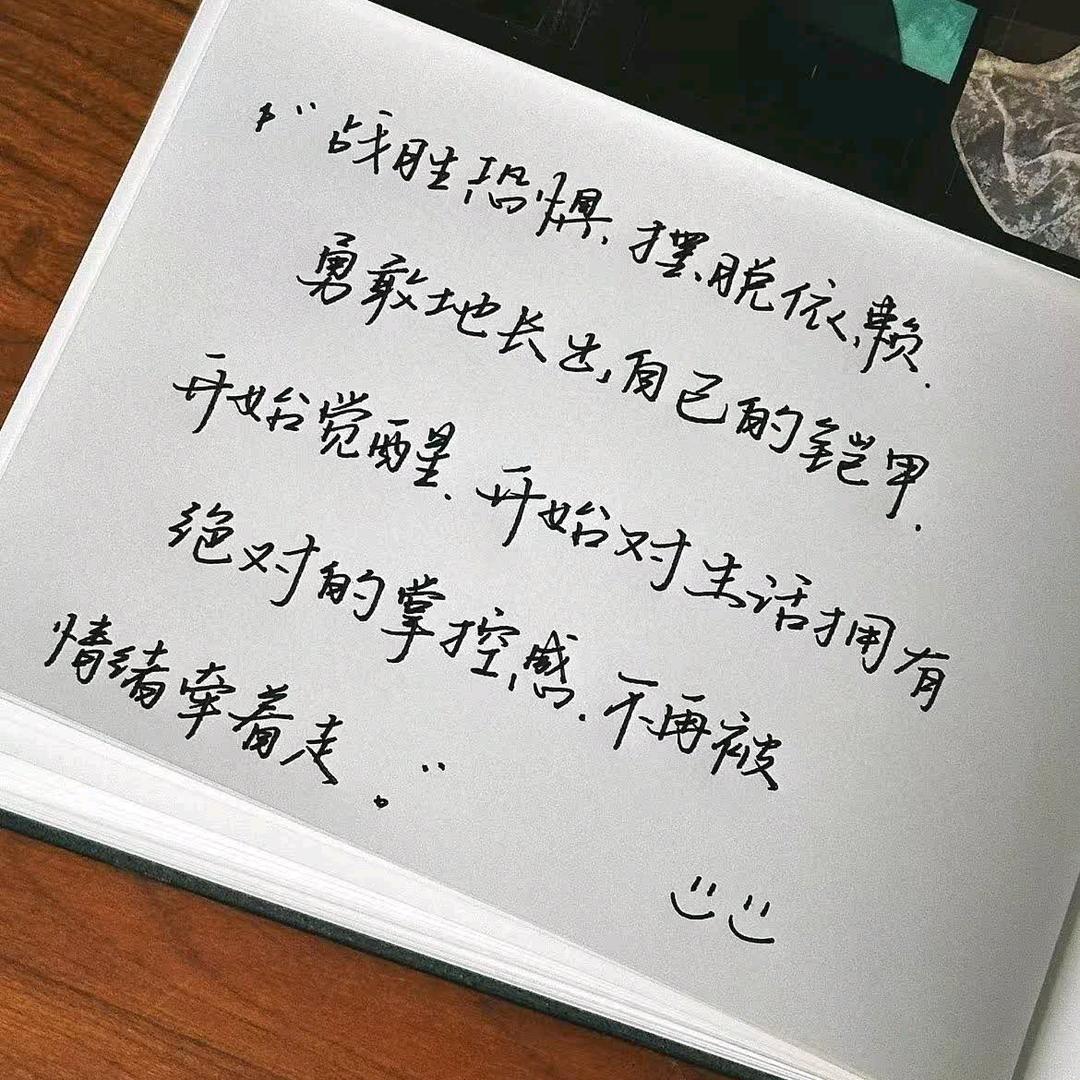 "战胜恐惧,摆脱依赖.
勇敢地长出自己的铠甲.
开始觉醒、开始对生活拥有
绝对的掌控感.不再被
情绪牵着走。"